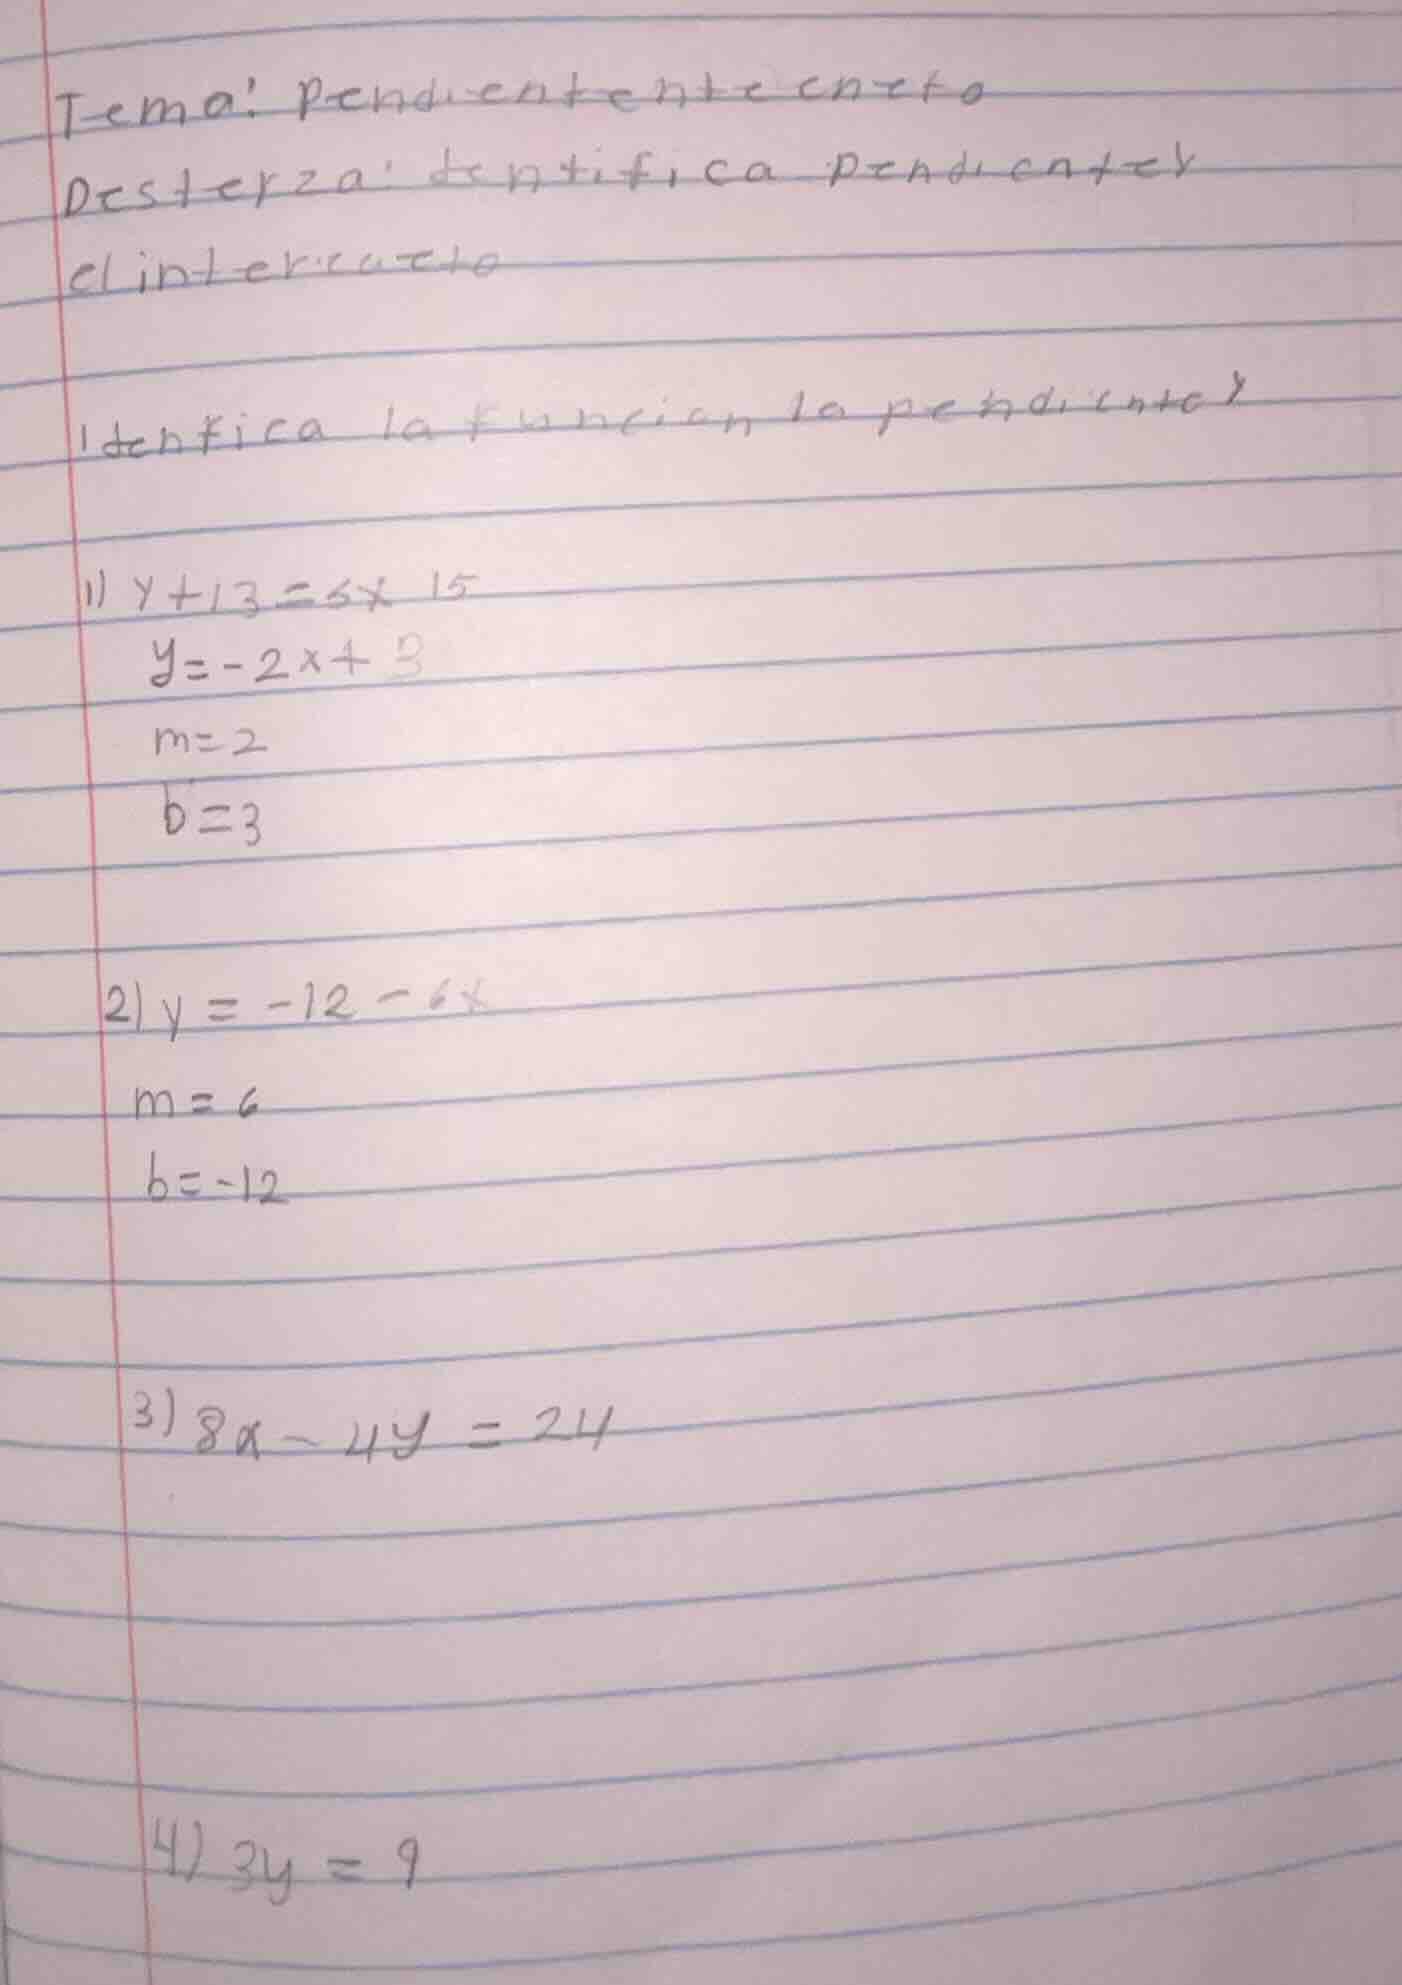 Tema: Pendientente eneto
Desterza: dentifica pendientey
el intercueto
Identfica la funcion la pendientey
1) y+13=5x 15
y=-2x+3
m=2
b=3
2) y = -12 - 6x
m = 6
b=-12
3) 8x - 4y = 24
4) 3y = 9